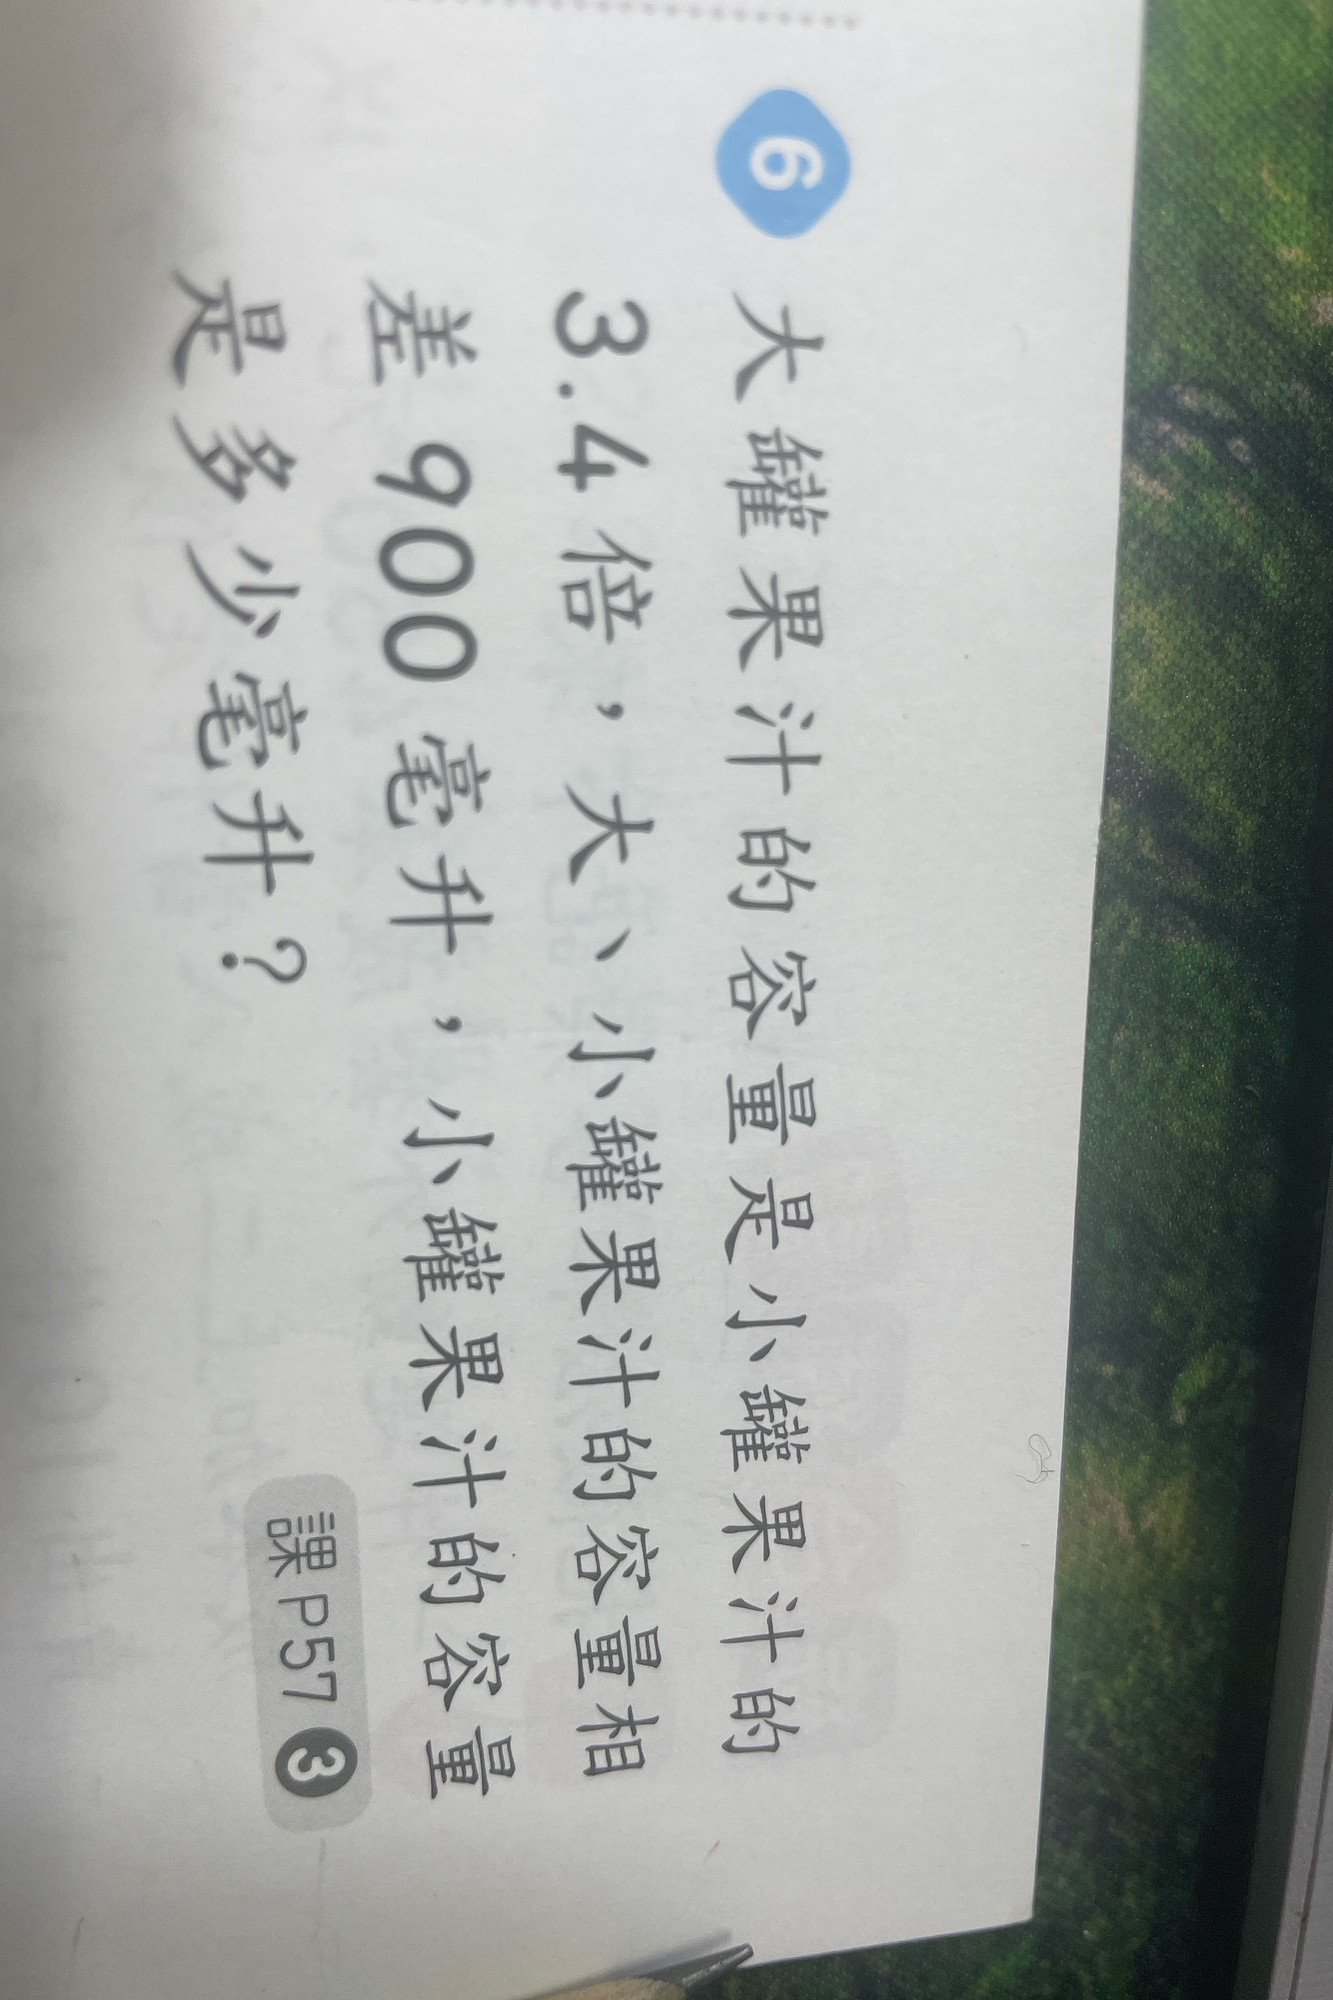 6 大罐果汁的容量是小罐果汁的
3.4 倍，大、小罐果汁的容量相
差 900 毫升，小罐果汁的容量
是多少毫升？
課 P57 3